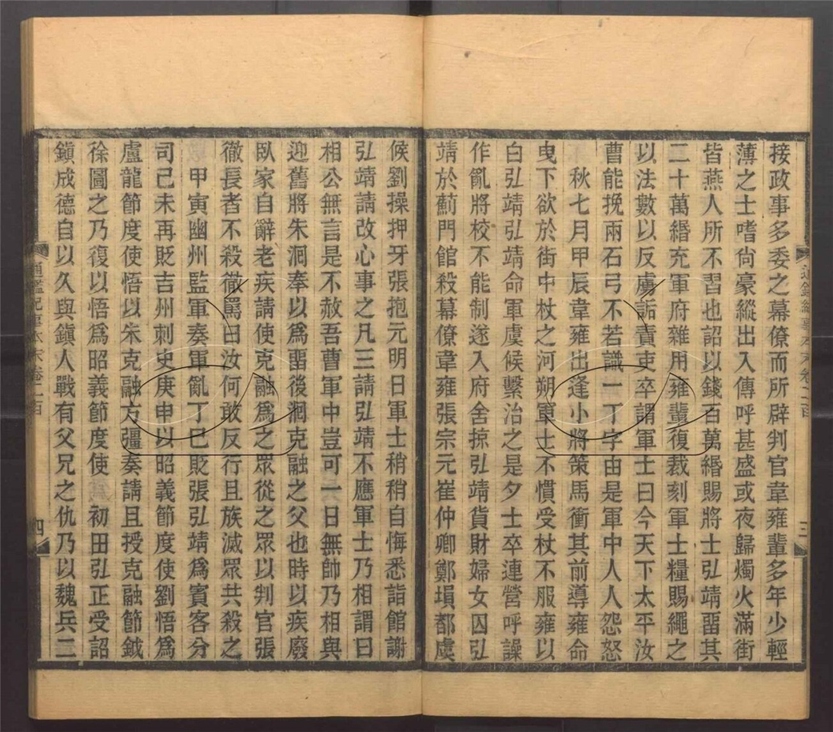 接政事多委之幕僚而所辟判官韋雍輩多年少輕
薄之士嗜尚豪縱出入傳呼甚盛或夜歸燭火滿街
皆燕人所不習也詔以錢百萬緡賜將士弘靖畱其
二十萬緡充軍府雜用雍輩復裁刻軍士糧賜繩之
以法數以反虜詬責吏卒謂軍士曰今天下太平汝
曹能挽兩石弓不若識一丁字由是軍中人人怨怒
秋七月甲辰韋雍出逢小將策馬衝其前導雍命
曳下欲於街中杖之河朔軍士不慣受杖不服雍以
白弘靖弘靖命軍虞候繫治之是夕士卒連營呼譟
作亂將校不能制遂入府舍掠弘靖貨財婦女囚弘
靖於薊門館殺幕僚韋雍張宗元崔仲卿鄭塤都虞
三
候劉操押牙張抱元明日軍士稍稍自悔悉詣館謝
弘靖請改心事之凡三請弘靖不應軍士乃相謂曰
相公無言是不赦吾曹軍中豈可一日無帥乃相與
迎舊將朱洄奉以爲畱後洄克融之父也時以疾廢
臥家自辭老疾請使克融爲之眾從之眾以判官張
徹長者不殺徹罵曰汝何敢反行且族滅眾共殺之
甲寅幽州監軍奏軍亂丁巳貶張弘靖爲賓客分
司己未再貶吉州刺史庚申以昭義節度使劉悟爲
盧龍節度使悟以朱克融方彊奏請且授克融節鉞
徐圖之乃復以悟爲昭義節度使　初田弘正受詔
鎮成德自以久與鎮人戰有父兄之仇乃以魏兵二
通鑑紀事本末卷二百
四